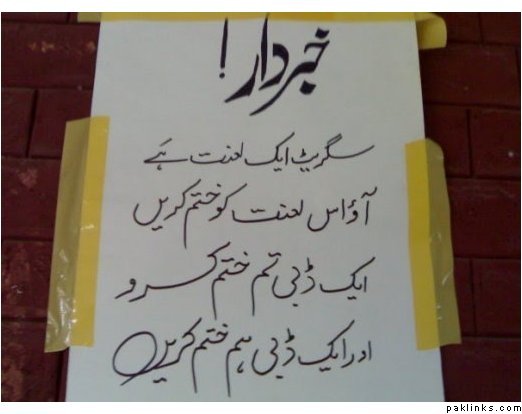 خبردار!
سگریٹ ایک لعنت ہے
آؤ اس لعنت کو ختم کریں
ایک ڈبی تم ختم کرو
اور ایک ڈبی ہم ختم کریں
paklinks.com